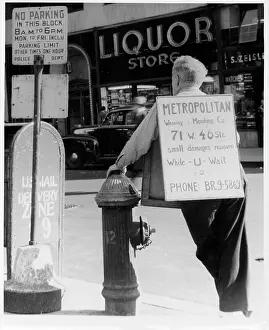 NO PARKING
IN THIS BLOCK
8 A.M. TO 6 P.M.
MON. TO FRI. INCLU
PARKING LIMIT
OTHER TIMES ONE HOUR
POLICE DEPT.
LIQUOR
STORE
S. ZEISL
METROPOLITAN
Weaving & Mending Co
71 W. 46 St.
small damages rewoven
While-U-Wait
PHONE BR. 9-5862
U.S. MAIL
DELIVERY
ZONE
9
12